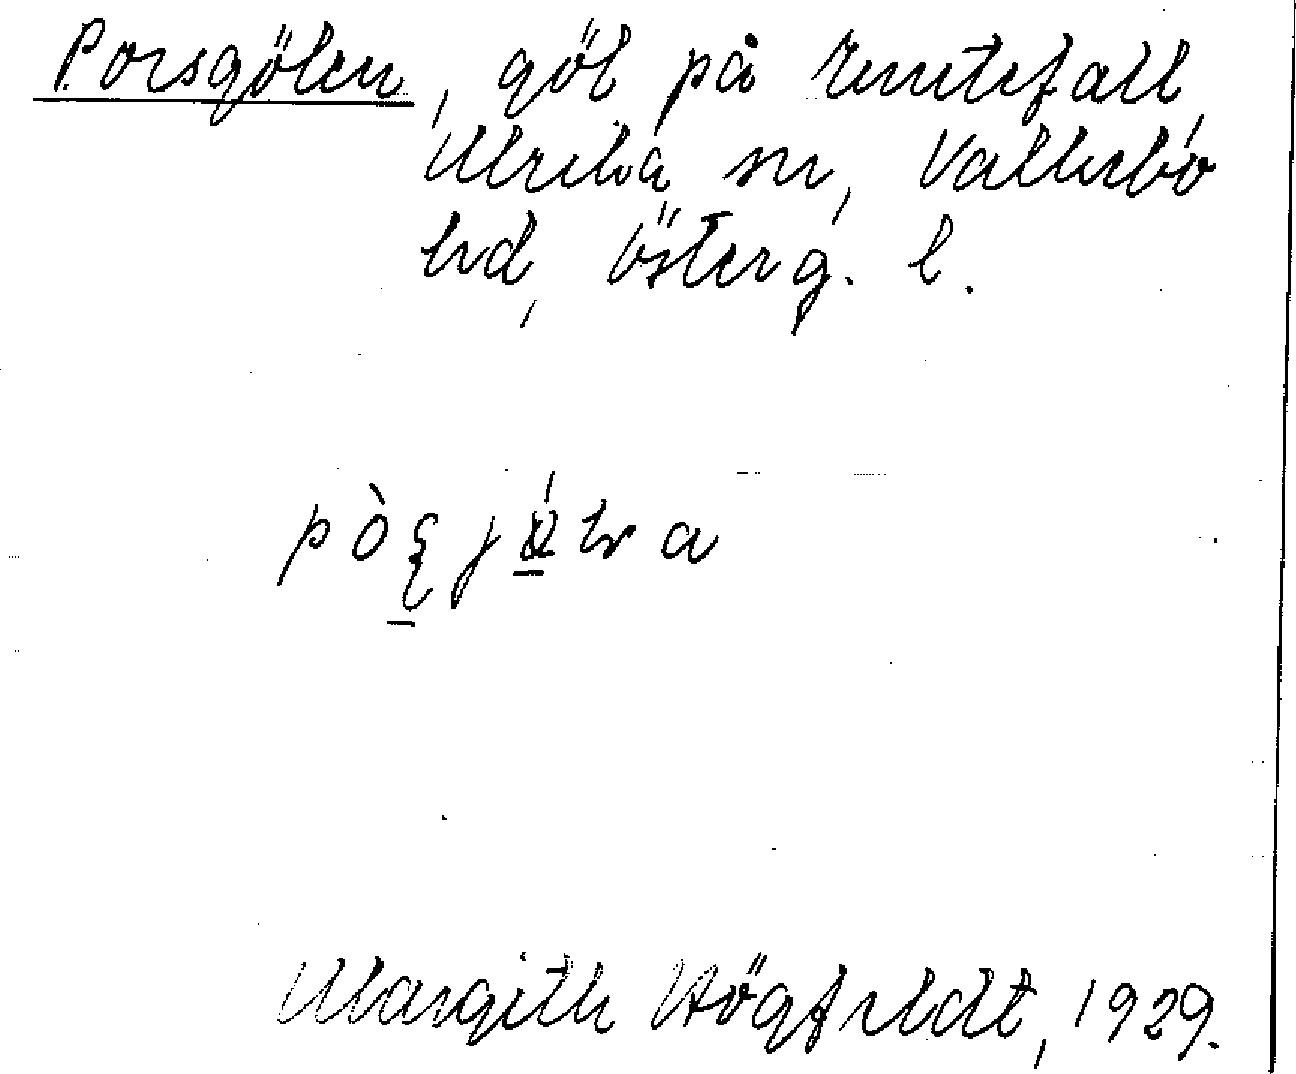 Porsgölen, göl på Runtefall,
Ulrika sn, Valkebo
hd, Österg. l.
Margith Högfeldt, 1929.